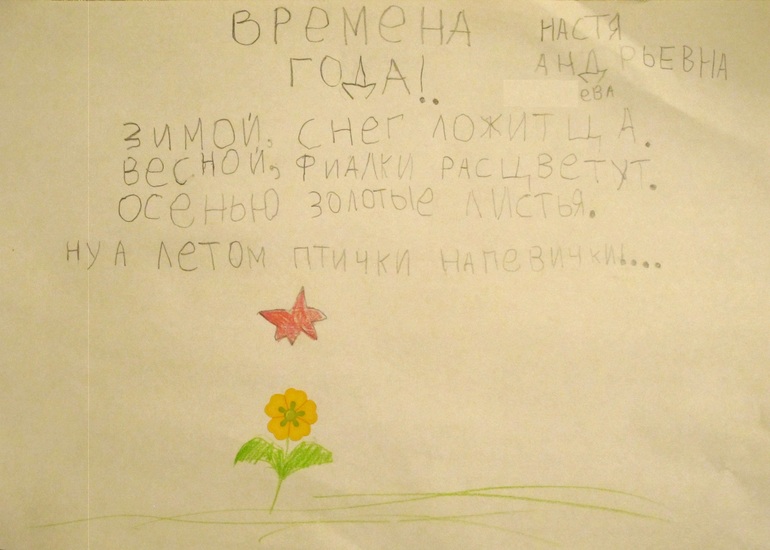 ВРЕМЕНА
ГОДА!..
НАСТЯ
АНДРЬЕВНА
ЕВА
ЗИМОЙ, СНЕГ ЛОЖИТЦА.
ВЕСНОЙ, ФИАЛКИ РАСЦВЕТУТ.
ОСЕНЬЮ ЗОЛОТЫЕ ЛИСТЬЯ.
НУ А ЛЕТОМ ПТИЧКИ НАПЕВИЧКИ!....